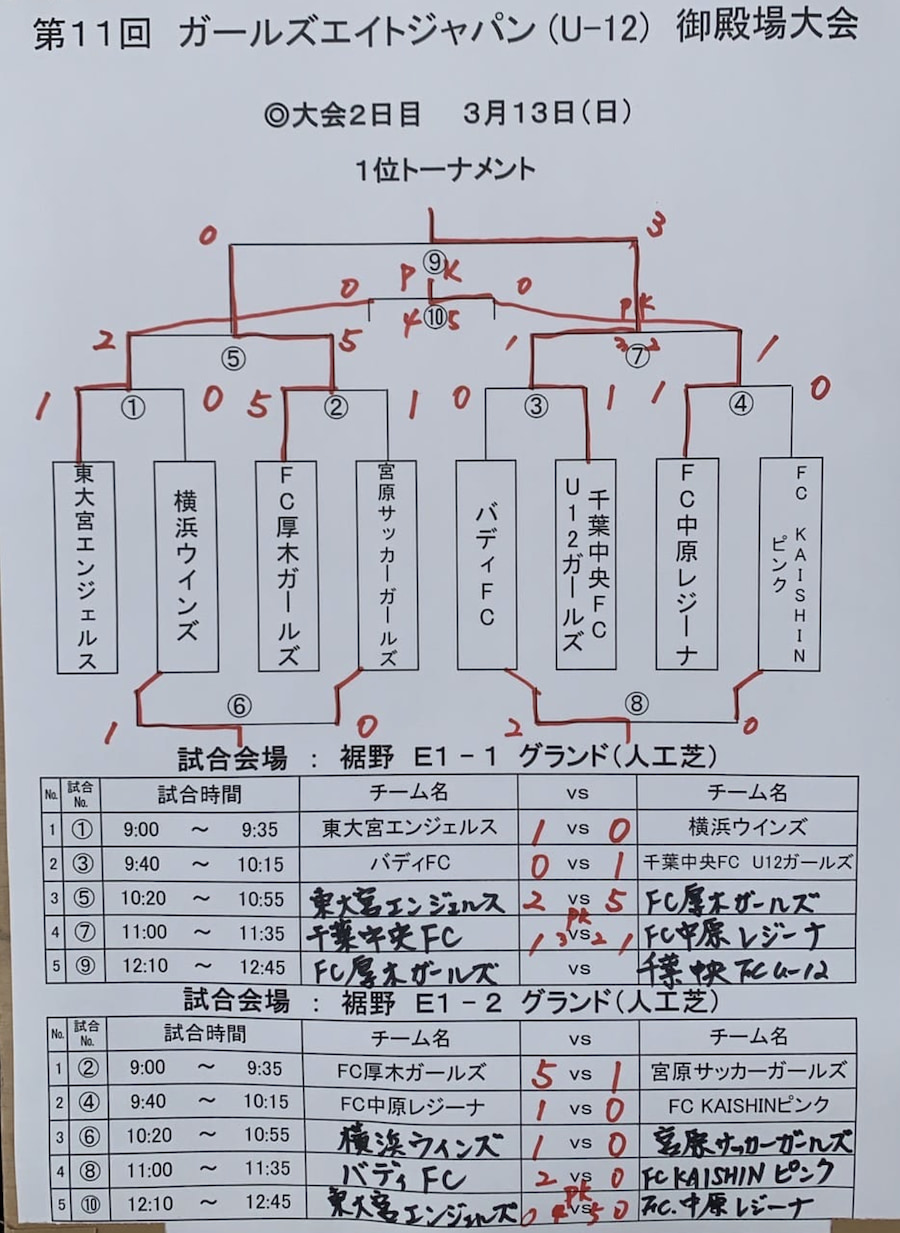 第11回 ガールズエイトジャパン(U-12) 御殿場大会
◎大会2日目 3月13日(日)
1位トーナメント
0 3
⑨
0 PK 0
4 ⑩ 5
2 ⑤ 5 1 PK 1
3 2
⑦
1 ① 0 5 ② 1 0 ③ 1 1 ④ 0
東大宮エンジェルス
横浜ウインズ
FC厚木ガールズ
宮原サッカーガールズ
バディFC
千葉中央FC
U12ガールズ
FC中原レジーナ
FC KAISHIN
ピンク
1 ⑥ 0 2 ⑧ 0
試合会場 : 裾野 E1-1 グランド(人工芝)
No. 試合No. 試合時間 チーム名 vs チーム名
1 ① 9:00 ~ 9:35 東大宮エンジェルス 1 vs 0 横浜ウインズ
2 ③ 9:40 ~ 10:15 バディFC 0 vs 1 千葉中央FC U12ガールズ
3 ⑤ 10:20 ~ 10:55 東大宮エンジェルス 2 vs 5 FC厚木ガールズ
4 ⑦ 11:00 ~ 11:35 千葉中央FC 1 3 PK vs 2 1 FC中原レジーナ
5 ⑨ 12:10 ~ 12:45 FC厚木ガールズ vs 千葉中央FCU-12
試合会場 : 裾野 E1-2 グランド(人工芝)
No. 試合No. 試合時間 チーム名 vs チーム名
1 ② 9:00 ~ 9:35 FC厚木ガールズ 5 vs 1 宮原サッカーガールズ
2 ④ 9:40 ~ 10:15 FC中原レジーナ 1 vs 0 FC KAISHINピンク
3 ⑥ 10:20 ~ 10:55 横浜ウィンズ 1 vs 0 宮原サッカーガールズ
4 ⑧ 11:00 ~ 11:35 バディFC 2 vs 0 FC KAISHIN ピンク
5 ⑩ 12:10 ~ 12:45 東大宮エンジェルズ 0 4 PK vs 5 0 FC.中原レジーナ